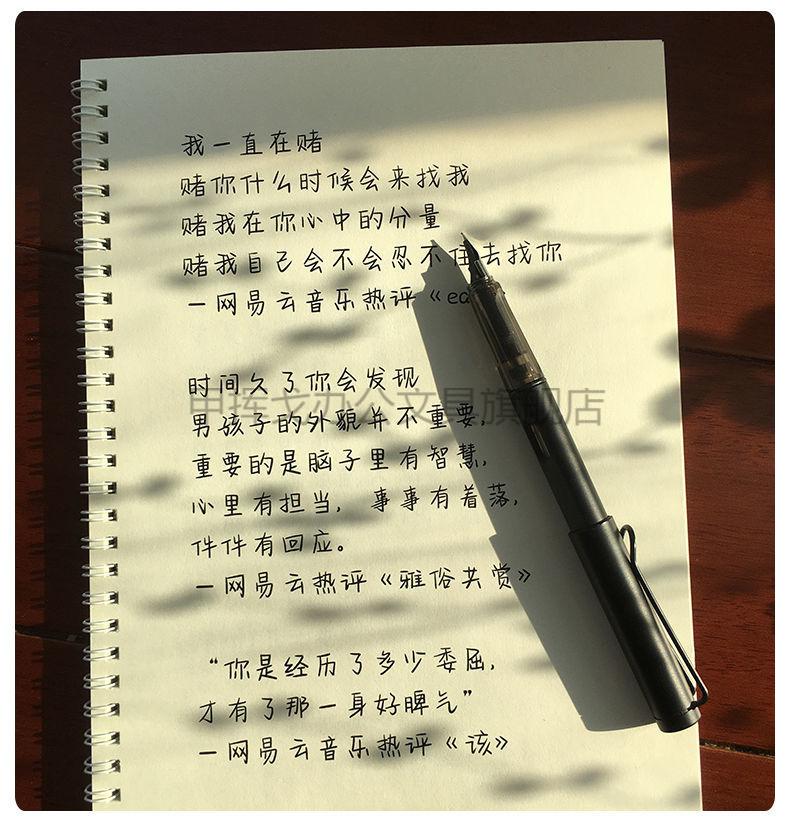 我一直在赌
赌你什么时候会来找我
赌我在你心中的分量
赌我自己会不会忍不住去找你
一网易云音乐热评《ea
时间久了你会发现
申珲戈办公文具旗舰店
男孩子的外貌并不重要，
重要的是脑子里有智慧，
心里有担当，事事有着落，
件件有回应。
一网易云热评《雅俗共赏》
“你是经历了多少委屈，
才有了那一身好脾气”
一网易云音乐热评《该》